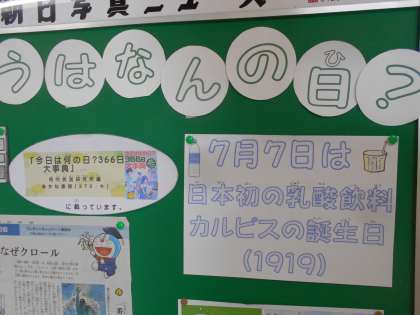 朝日写真ニュース
うはなんの日?
ひ
「今日は何の日?366日
大事典」
に載っています。
7月7日は
日本初の乳酸飲料
カルピスの誕生日
(1919)
なぜクロール